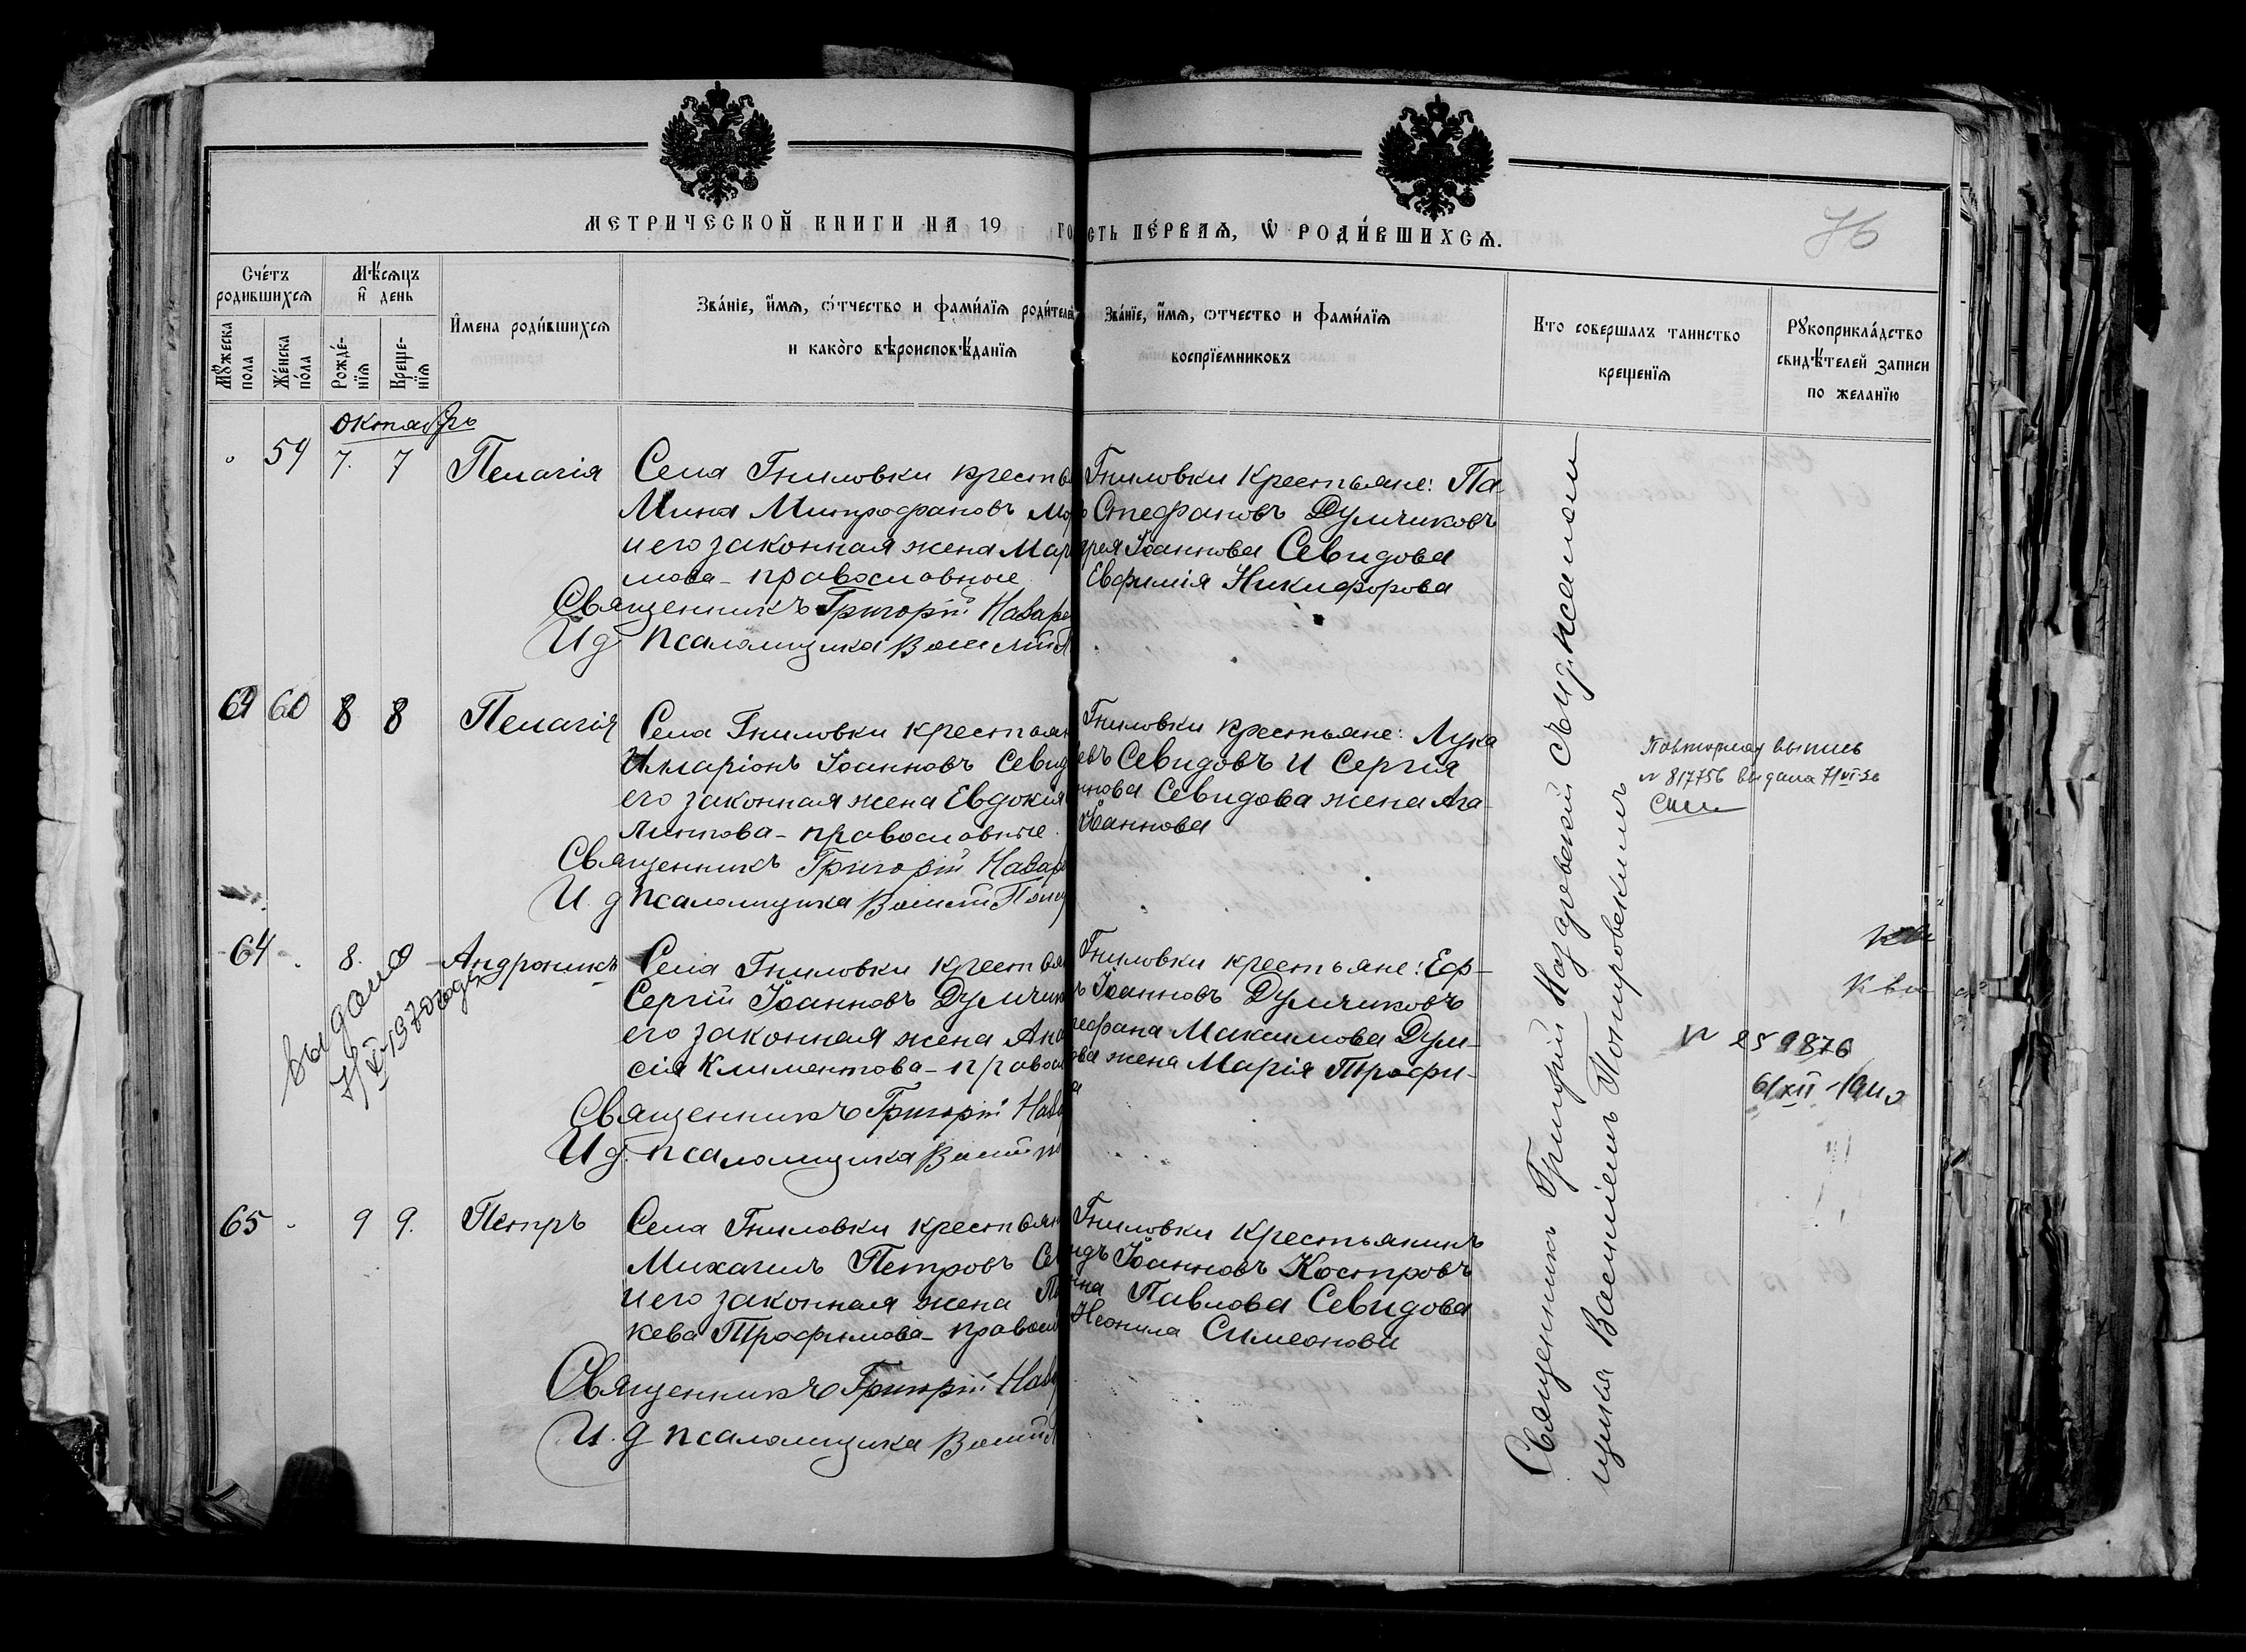 МЕТРИЧЕСКОЙ КНИГИ НА 19
СТЬ ПЕ́РВАѦ, Ѡ҆ РОДИ́ВШИХСѦ.
76
Сче́тъ родившихсѧ
Мѣ́сѧцъ и҆ день
Мꙋ́жеска пола
Же́нска по́ла
Рожде́-нїѧ
Креще-нїѧ
И҆мена роди́вшихсѧ
Зва́нїе, и҆́мѧ, ѻ҆́тчество и фами́лїѧ роди́телей
и како́го вѣроисповѣ́данїѧ
Зва́нїе, и҆́мѧ, отчество и фами́лїѧ
воспрїемниковъ
Кто совершалъ таинство
крещенїѧ
Рꙋкоприкла́дство
свидѣ́телей записи
по желанїю
октябрь
59 7. 7 Пелагія
Села Гниловки крестья
Мина Митрофановъ
и его законная жена Мар
мова - православные
Священникъ Григорій Назаре
И д псаломщика Василій
Гниловки крестьяне: Па
Стефановъ Думчиковъ
Іоаннова Севидова
Евфимія Никифорова
60 8 8 Пелагія
Села Гниловки крестьян
Иларіонъ Іоанновъ Севид
его законная жена Евдокия
православные.
Священникъ Григорій Назар
И. д псаломщика Василій
Гниловки крестьяне: Лука
евъ Севидовъ и Сергія
ннова Севидова жена Ага-
Іоаннова
Повторная выпись
№ 817756 выдана
64 8. Андроникъ
Села Гниловки крестьян
Сергій Іоанновъ Думчик
его законная жена Ана
сія Климентова - правосл
Священникъ Григорій Наза
И д. псаломщика Василій
выдано
Гниловки крестьяне: Еф-
ъ Іоанновъ Думчиковъ
тефана Максимова Дум-
ова жена Марія Трофи-
а
№ 259876
65 9 9. Петръ
Села Гниловки крестьян
Михаилъ Петровъ Се
и его законная жена
кева Трофимова - правосл
Священникъ Григорій Наза
И. д псаломщика Василій
Гниловки крестьянинъ
идъ Іоанновъ Костровъ
на Павлова Севидова
Неонила Симеонова
Священникъ Григорій Назаревскій съ и.д. псалом
щика Василіемъ